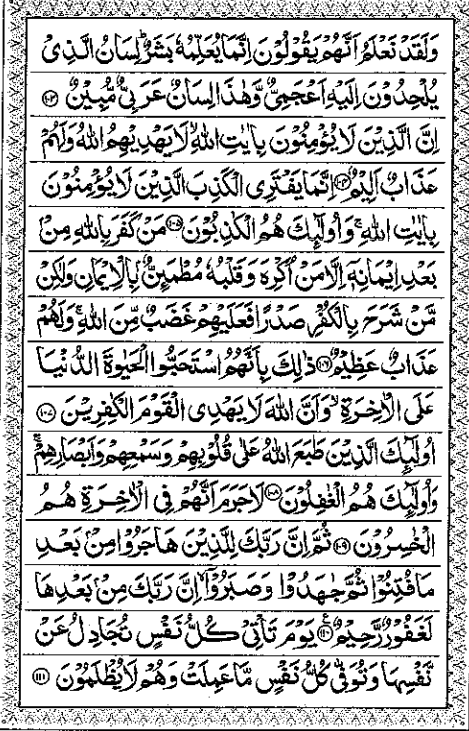 وَلَقَدۡ نَعۡلَمُ اَنَّهُمۡ يَقُوۡلُوۡنَ اِنَّمَا يُعَلِّمُهٗ بَشَرٌؕ لِسَانُ الَّذِىۡ
يُلۡحِدُوۡنَ اِلَيۡهِ اَعۡجَمِىٌّ وَّهٰذَا لِسَانٌ عَرَبِىٌّ مُّبِيۡنٌ ﴿۱۰۳﴾
اِنَّ الَّذِيۡنَ لَا يُؤۡمِنُوۡنَ بِاٰيٰتِ اللّٰهِۙ لَا يَهۡدِيۡهِمُ اللّٰهُ وَلَهُمۡ
عَذَابٌ اَلِيۡمٌ ﴿۱۰۴﴾ اِنَّمَا يَفۡتَرِى الۡكَذِبَ الَّذِيۡنَ لَا يُؤۡمِنُوۡنَ
بِاٰيٰتِ اللّٰهِۚ وَاُولٰٓٮِٕكَ هُمُ الۡكٰذِبُوۡنَ ﴿۱۰۵﴾ مَنۡ كَفَرَ بِاللّٰهِ مِنۡۢ
بَعۡدِ اِيۡمَانِهٖۤ اِلَّا مَنۡ اُكۡرِهَ وَقَلۡبُهٗ مُطۡمَٮِٕنٌّۢ بِالۡاِيۡمَانِ وَلٰـكِنۡ
مَّنۡ شَرَحَ بِالۡكُفۡرِ صَدۡرًا فَعَلَيۡهِمۡ غَضَبٌ مِّنَ اللّٰهِۚ وَلَهُمۡ
عَذَابٌ عَظِيۡمٌ ﴿۱۰۶﴾ ذٰلِكَ بِاَنَّهُمُ اسۡتَحَبُّوا الۡحَيٰوةَ الدُّنۡيَا
عَلَى الۡاٰخِرَةِۙ وَاَنَّ اللّٰهَ لَا يَهۡدِى الۡقَوۡمَ الۡكٰفِرِيۡنَ ﴿۱۰۷﴾
اُولٰٓٮِٕكَ الَّذِيۡنَ طَبَعَ اللّٰهُ عَلٰى قُلُوۡبِهِمۡ وَسَمۡعِهِمۡ وَاَبۡصَارِهِمۡۚ
وَاُولٰٓٮِٕكَ هُمُ الۡغٰفِلُوۡنَ ﴿۱۰۸﴾ لَا جَرَمَ اَنَّهُمۡ فِى الۡاٰخِرَةِ هُمُ
الۡخٰسِرُوۡنَ ﴿۱۰۹﴾ ثُمَّ اِنَّ رَبَّكَ لِلَّذِيۡنَ هَاجَرُوۡا مِنۡۢ بَعۡدِ
مَا فُتِنُوۡا ثُمَّ جٰهَدُوۡا وَصَبَرُوۡۤا اِنَّ رَبَّكَ مِنۡۢ بَعۡدِهَا
لَغَفُوۡرٌ رَّحِيۡمٌ ﴿۱۱۰﴾ يَوۡمَ تَاۡتِىۡ كُلُّ نَفۡسٍ تُجَادِلُ عَنۡ
نَّفۡسِهَا وَتُوَفّٰى كُلُّ نَفۡسٍ مَّا عَمِلَتۡ وَهُمۡ لَا يُظۡلَمُوۡنَ ﴿۱۱۱﴾